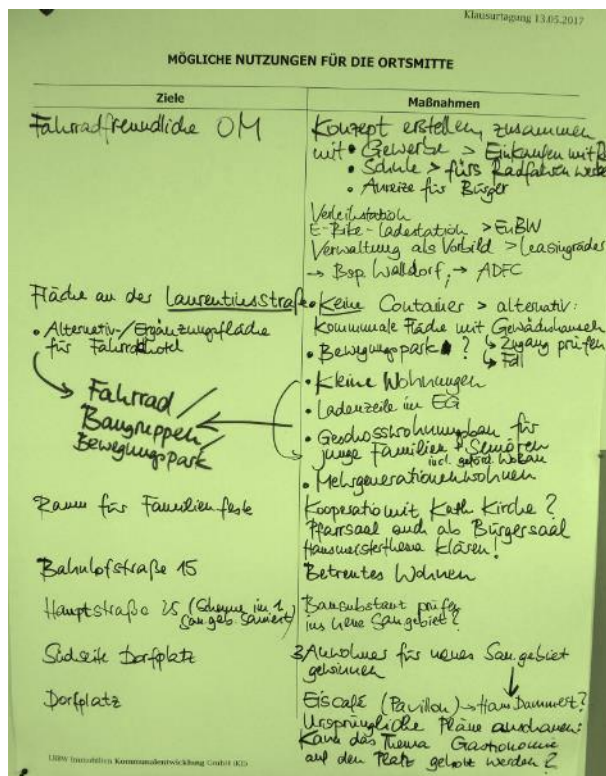 Klausurtagung 13.05.2017
MÖGLICHE NUTZUNGEN FÜR DIE ORTSMITTE
Ziele
Maßnahmen
Fahrradfreundliche OM
Konzept erstellen, zusammen
mit • Gewerbe > Einkaufen mit
• Schule > fürs Radfahren
• Anreize für Bürger
Verleihstation
E-Bike-Ladestation > EnBW
Verwaltung als Vorbild > Leasingräder
→ Bsp. Walldorf, → ADFC
Fläche an der Laurentiusstraße
• Alternativ-/Ergänzungsfläche
für Fahrradhotel
Fahrrad/
Baugruppen/
Bewegungspark
• Keine Container > alternativ:
Kommunale Fläche mit Gewächshäusern
↳ Zugang prüfen
• Bewegungspark ?
• Kleine Wohnungen
• Ladenzeile im EG
• Geschosswohnungsbau für
junge Familien + Senioren
incl. geförd. Wobau
• Mehrgenerationenwohnen
Raum für Familienfeste
Kooperatio mit Kath Kirche ?
Pfarrsaal auch als Bürgersaal
Hausmeisterthema klären!
Bahnhofstraße 15
Betreutes Wohnen
Hauptstraße 25 (Scheune im 1.
San.geb. saniert)
Bausubstanz prüfen
ins neue San.gebiet ?
Südseite Dorfplatz
3 Anwohner für neues San.gebiet
gewinnen
Dorfplatz
Eiscafé (Pavillon) → Hans Dammert?
Ursprüngliche Pläne anschauen:
Kann das Thema Gastronomie
auf den Platz geholt werden ?
LBBW Immobilien Kommunalentwicklung GmbH (KE)